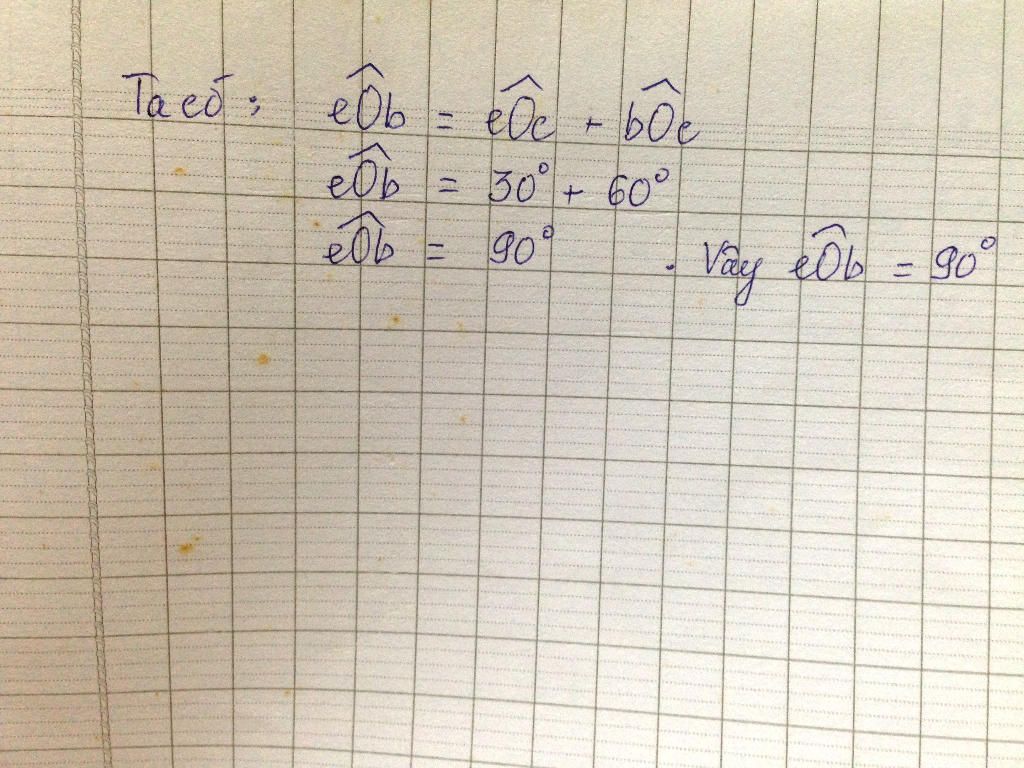 Ta có : eÔb = eÔc + bÔc
eÔb = 30° + 60°
eÔb = 90° . Vậy eÔb = 90°